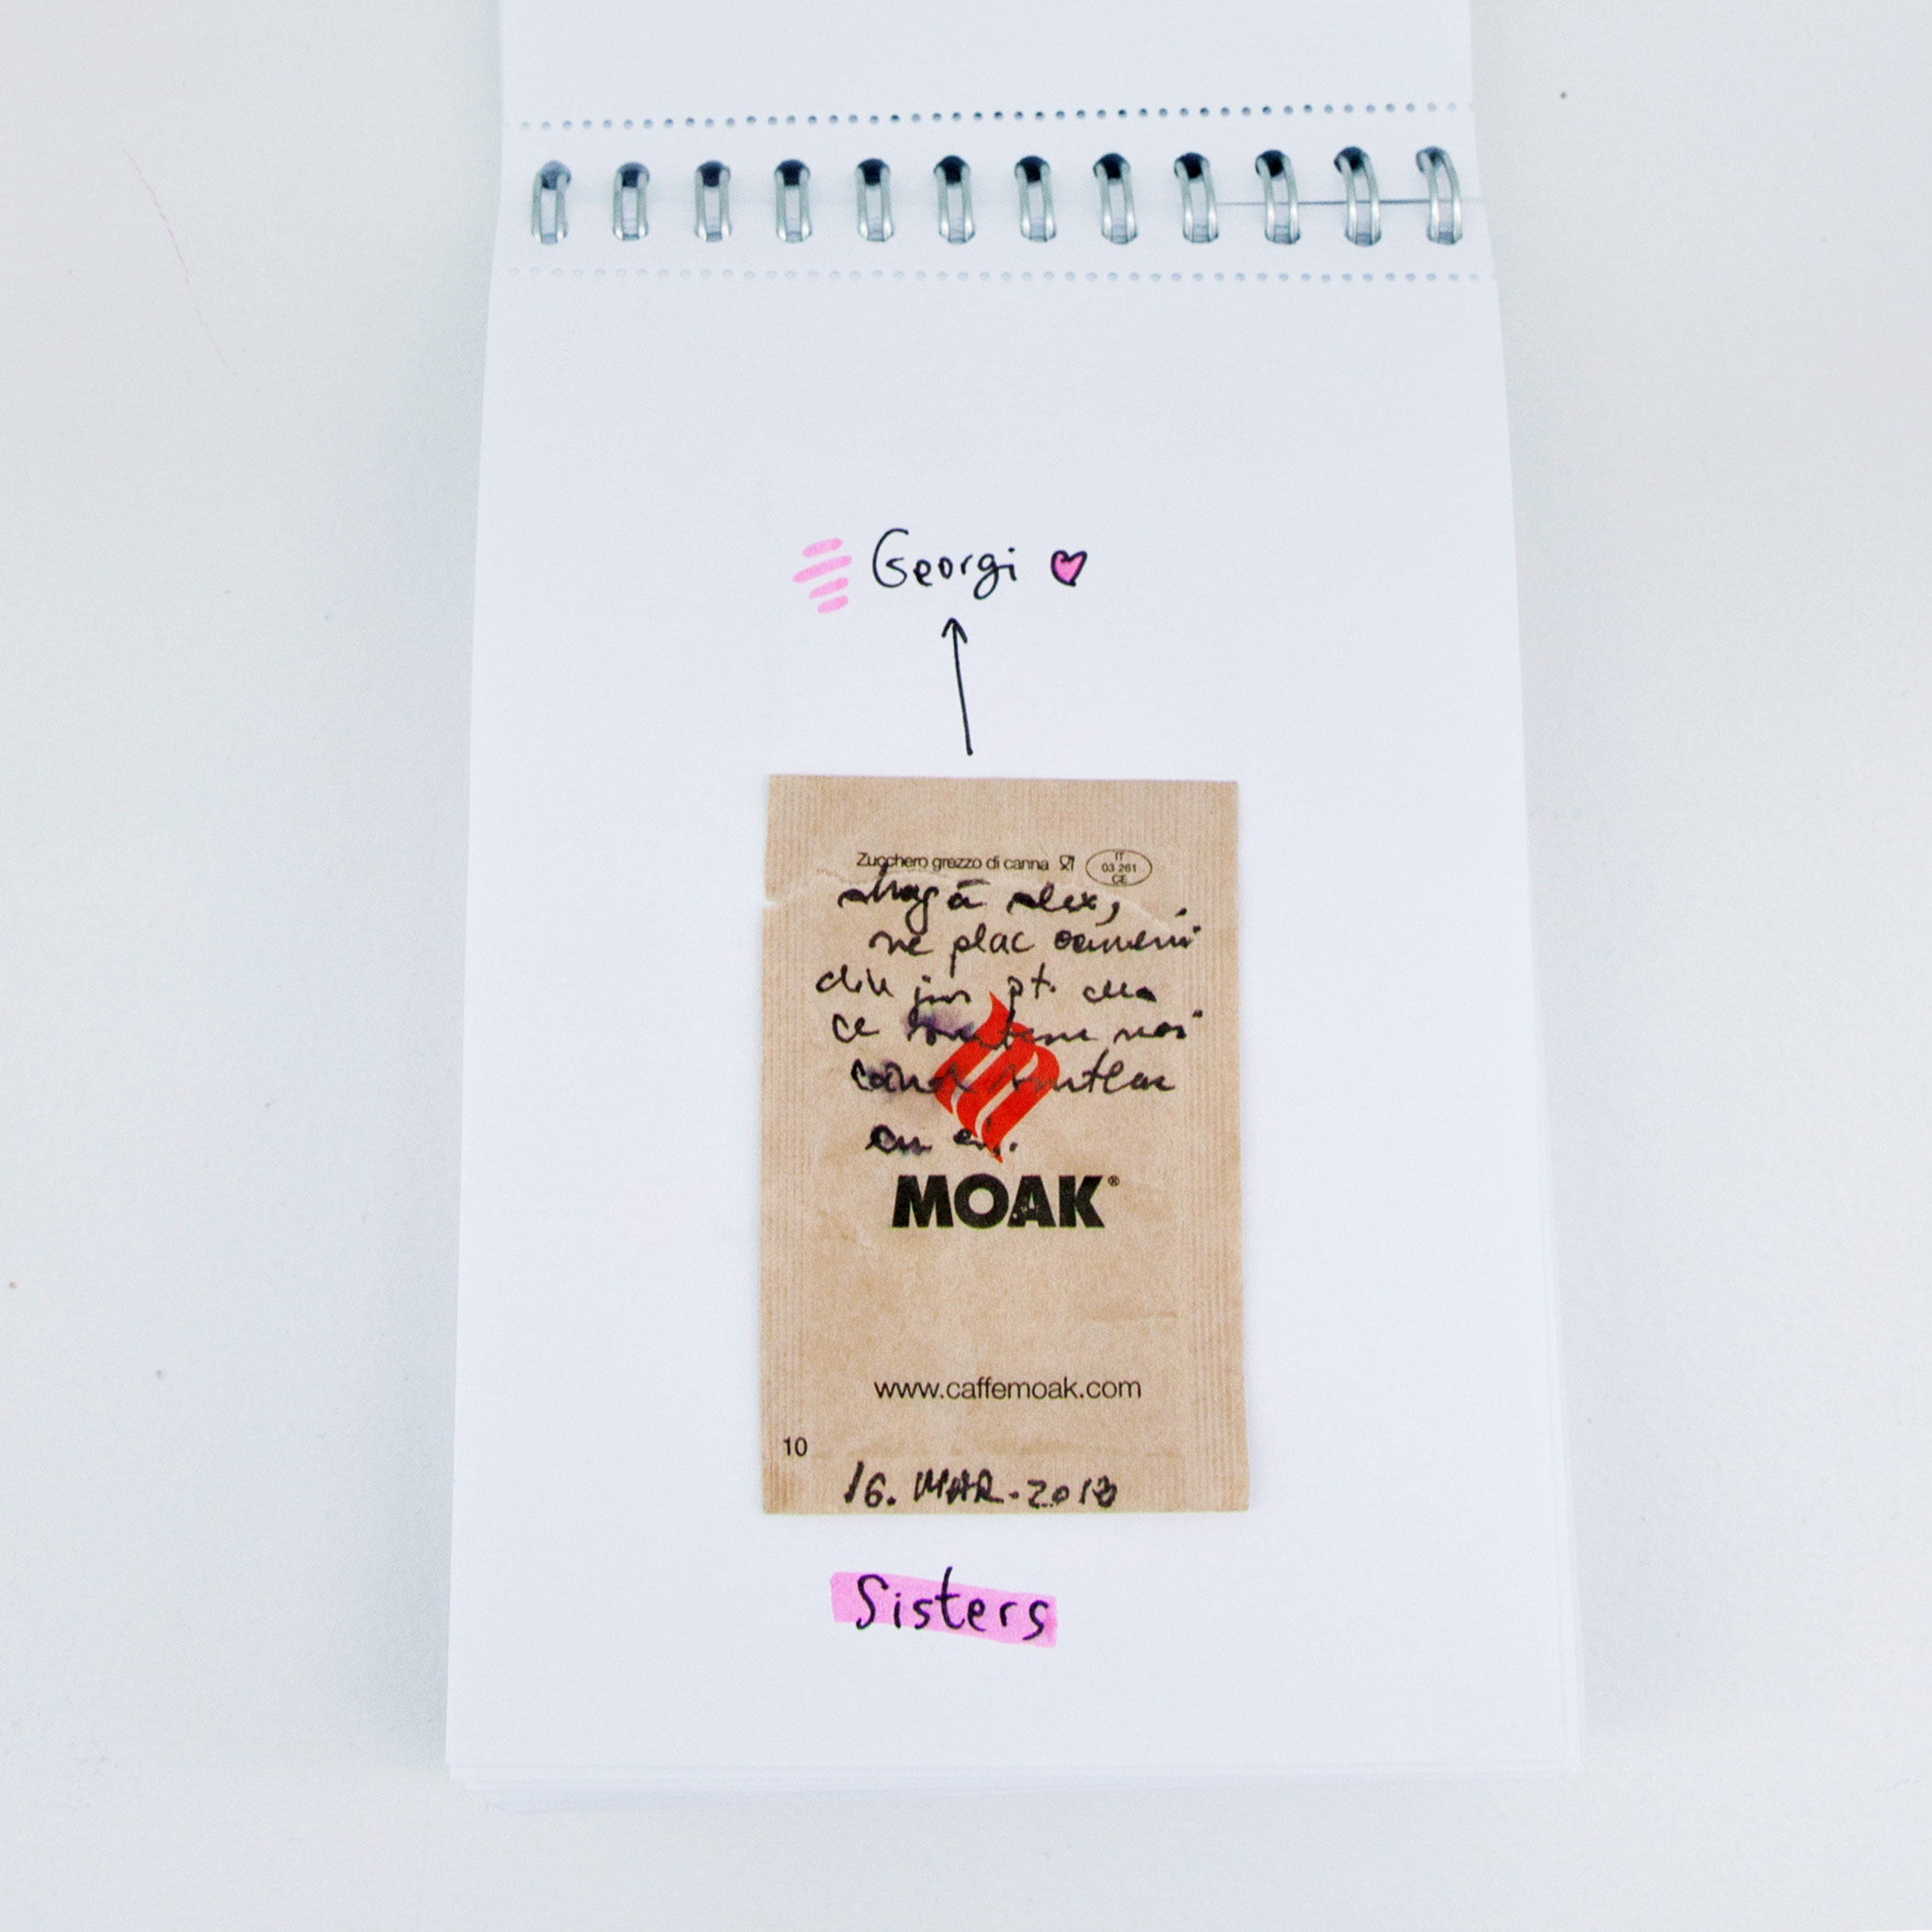 Georgi
Zucchero grezzo di canna
IT
03 261
CE
dragă alex,
ne plac oamenii
din jur pt. ceea
ce suntem noi
când suntem
cu ei.
MOAK®
www.caffemoak.com
10
16. MAR. 2013
Sisters